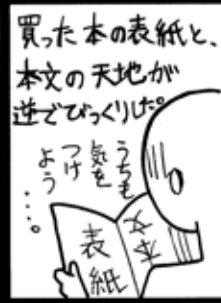 買った本の表紙と、
本文の天地が
逆でびっくりした。
うちも
気を
つけ
よう
・・・。
表紙
本文